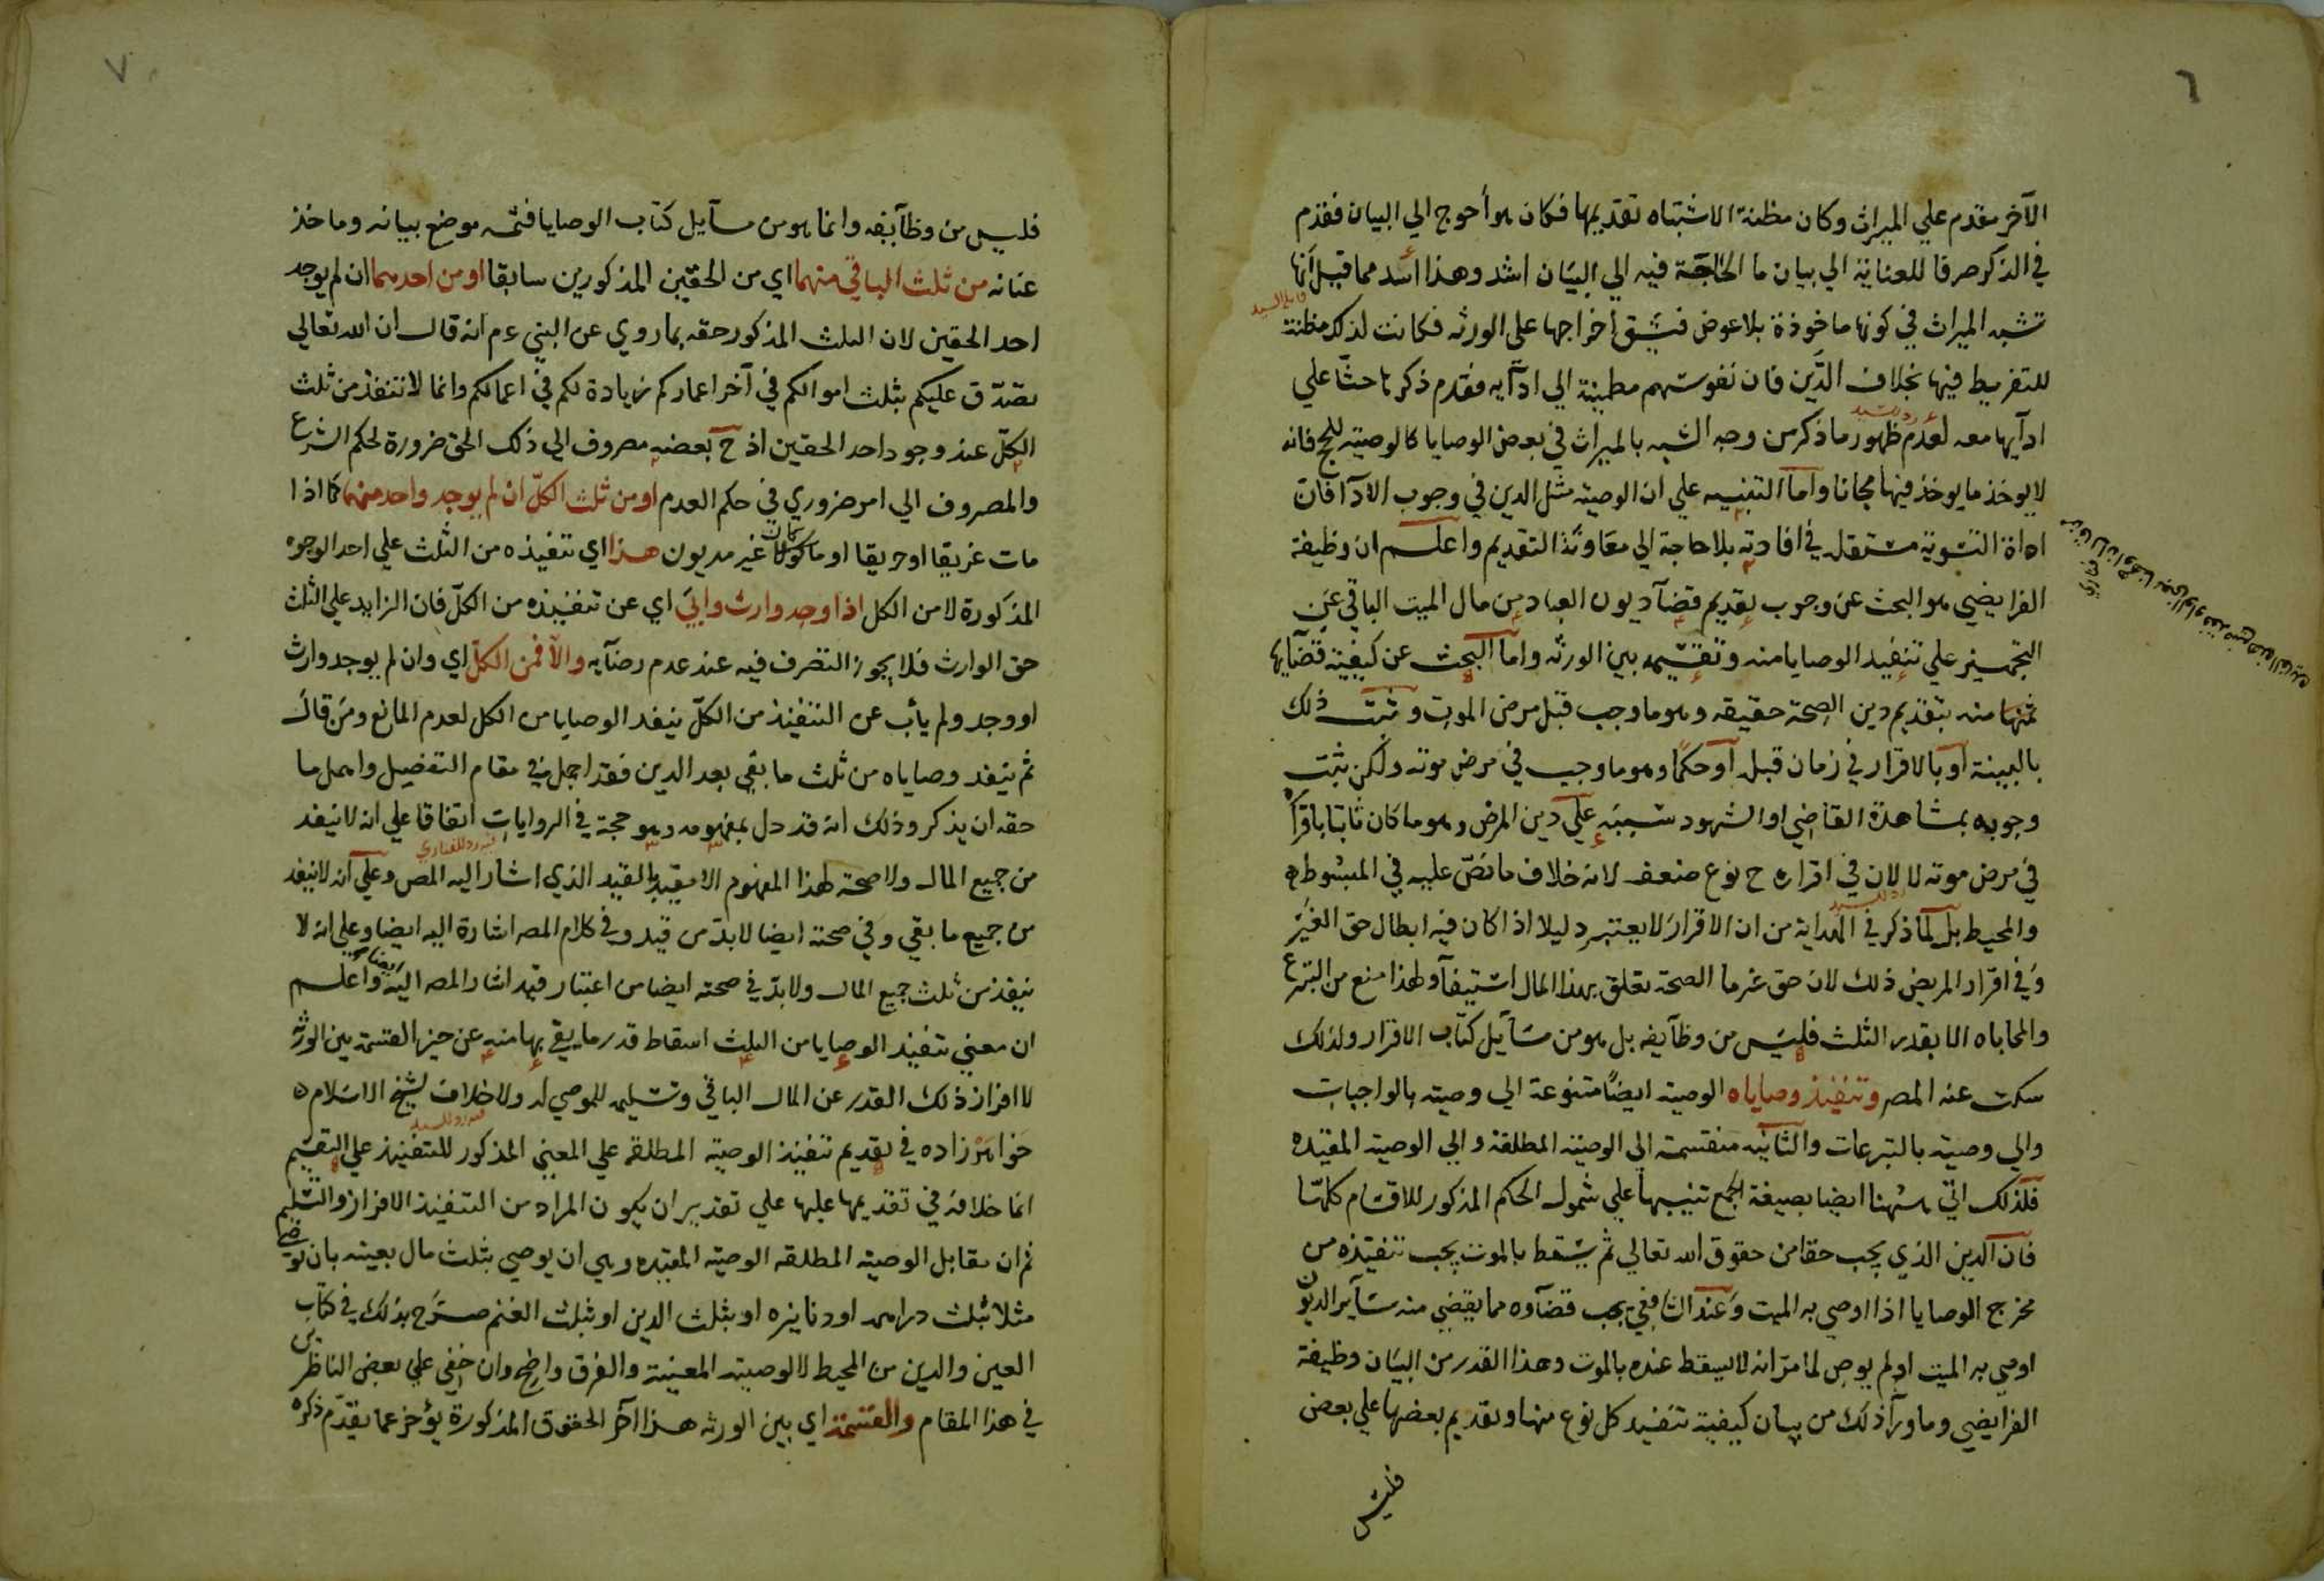 ٦
الآخر مقدم علي الميراث وكان مظنة الاشتباه تقديمها فكان هو أحوج الي البيان فقدم
في الذكر صرفا للعناية الي بيان ما الحاجة فيه الي البيان اشد وهذا اسد مما قيل انها
قايلا السيد
تشبه الميراث في كونها ماخوذة بلا عوض فيشق اخراجها علي الورثه فكانت لذلك مظنة
للتفريط فيها بخلاف الدَّين فان نفوسهم مطمينة الي ادآيه فقدم ذكرها حثّا علي
رد للسيد
ادآيها معه لعدم ظهور ما ذكر من وجه الشبه بالميراث في بعض الوصايا كالوصية للحج فانه
لا يوخذ ما يوخذ فيها مجانا واما التنبيه علي ان الوصية مثل الدين في وجوب الادآ فان
اداة التسوية مستقلة في افادته بلا حاجة الي معاونة التقديم واعلم ان وظيفة
الفرايضي هو البحث عن وجوب تقديم قضآ ديون العباد من مال الميت الباقي عن
التجهيز علي تنفيذ الوصايا منه وتقسيمه بين الورثه واما البحث عن كيفية قضآيها
ثمنها منه بتقديم دين الصحة حقيقه وهو ما وجب قبل مرض الموت وثبت ذلك
بالبينة او بالاقرار في زمان قبله او حكمًا وهو ما وجب في مرض موته ولكن يثبت
وجوبه بمشاهدة القاضي او الشهود سببَه علي دين المرض وهو ما كان ثابتا باقراره
في مرض موته لا لان في اقراره ح نوع ضعف لانه خلاف ما نصّ عليه في المبسوط
رد للسيد
والمحيط بل لما ذكر في الهداية من ان الاقرار لا يعتبر دليلا اذا كان فيه ابطال حق الغير
وفي اقرار المريض ذلك لان حق غرما الصحة تعلق بهذا المال استيفآ ولهذا منع من التبرع
والمحاباه الا بقدر الثلث فليس من وظآيفه بل هو من مسآيل كتاب الاقرار ولذلك
سكت عنه المصر وتنفيذ وصاياه الوصية ايضًا متنوعة الي وصية بالواجبات
والي وصية بالتبرعات والثانيه منقسمة الي الوصية المطلقة والي الوصية المقيّده
فلذلك اتي ههنا ايضا بصيغة الجمع تنبيها علي شمول الحكم المذكور للاقسام كلها
فان الدين الذي يجب حقا من حقوق الله تعالي ثم يسقط بالموت يجب تنفيذه من
مخرج الوصايا اذا اوصي به الميت وعند الشافعي يجب قضآوه مما يقضي منه سآير الديون
اوصي به الميت او لم يوص لما مرّ انه لا يسقط عنده بالموت وهذا القدر من البيان وظيفة
الفرايضي وما ورآ ذلك من بيان كيفية تنفيذ كل نوع منها وتقديم بعضها علي بعض
فليس
٧
فليس من وظآيفه وانما هو من مسآيل كتاب الوصايا فثمه موضع بيانه وما خذ
عنانه من ثلث الباقي منهما اي من الحقين المذكورين سابقا او من احدهما ان لم يوجد
احد الحقين لان الثلث المذكور حقه بما روي عن النبي ءم انه قال ان الله تعالي
تصدّق عليكم بثلث اموالكم في آخر اعماركم زيادة لكم في اعمالكم وانما لا تنفذ من ثلث
الكلّ عند وجود احد الحقين اذ ح بعضه مصروف الي ذلك الحق ضرورة لحكم الشرع
والمصروف الي امر ضروري في حكم العدم او من ثلث الكلّ ان لم يوجد واحد منهما كما اذا
مات غريقا او حريقا او ماكولا غير مديون هذا اي تنفيذه من الثلث علي احد الوجوه
المذكورة لا من الكل اذا وجد وارث وابيَ اي عن تنفيذه من الكلّ فان الزايد علي الثلث
حق الوارث فلا يجوز التصرف فيه عند عدم رضآيه والآ فمن الكلّ اي وان لم يوجد وارث
او وجد ولم يأب عن التنفيذ من الكلّ ينفد الوصايا من الكل لعدم المانع ومن قال
ثم ينفد وصاياه من ثلث ما بقي بعد الدين فقد اجمل في مقام التفصيل واهمل ما
حقه ان يذكر وذلك انه قد دل بمفهومه وهو حجة في الروايات اتفاقا علي انه لا ينفد
فيه رد للفناري
من جميع المال ولا صحة لهذا المفهوم الا بتقييد بالقيد الذي اشار اليه المص وعلي انه لا ينفد
من جميع ما بقي وفي صحته ايضا لا بدّ من قيد وفي كلام المصر اشارة اليه ايضا وعلي انه لا
ينفذ من ثلث جميع المال ولا بدّ في صحته ايضا من اعتبار قيد اشار المصر اليه ايضا واعلم
ان معني تنفيذ الوصايا من الثلث اسقاط قدر ما يفي بها منه عن حيز القسمة بين الورثه
لا افراز ذلك القدر عن المال الباقي وتسليمه للموصي له ولا خلاف لشيخ الاسلام
فيه رد للسيد
خواهَرْزاده في تقديم تنفيذ الوصية المطلقه علي المعني المذكور للتنفيذ علي التقسيم
انما خلافه في تقديمها عليها علي تقدير ان يكون المراد من التنفيذ الافراز والتسليم
ثم ان مقابل الوصية المطلقه الوصية المقيده وهي ان يوصي بثلث مال بعينه بان يوصي
مثلا بثلث دراهمه او دنانيره او بثلث الدين او بثلث الغنم صَرّح بذلك في كتاب
العين والدين من المحيط لا الوصية المعينة والفرق واضح وان خفي علي بعض الناظرين
في هذا المقام والقسمة اي بين الورثه هذا آخر الحقوق المذكورة يؤخر عما يقدّم ذكره